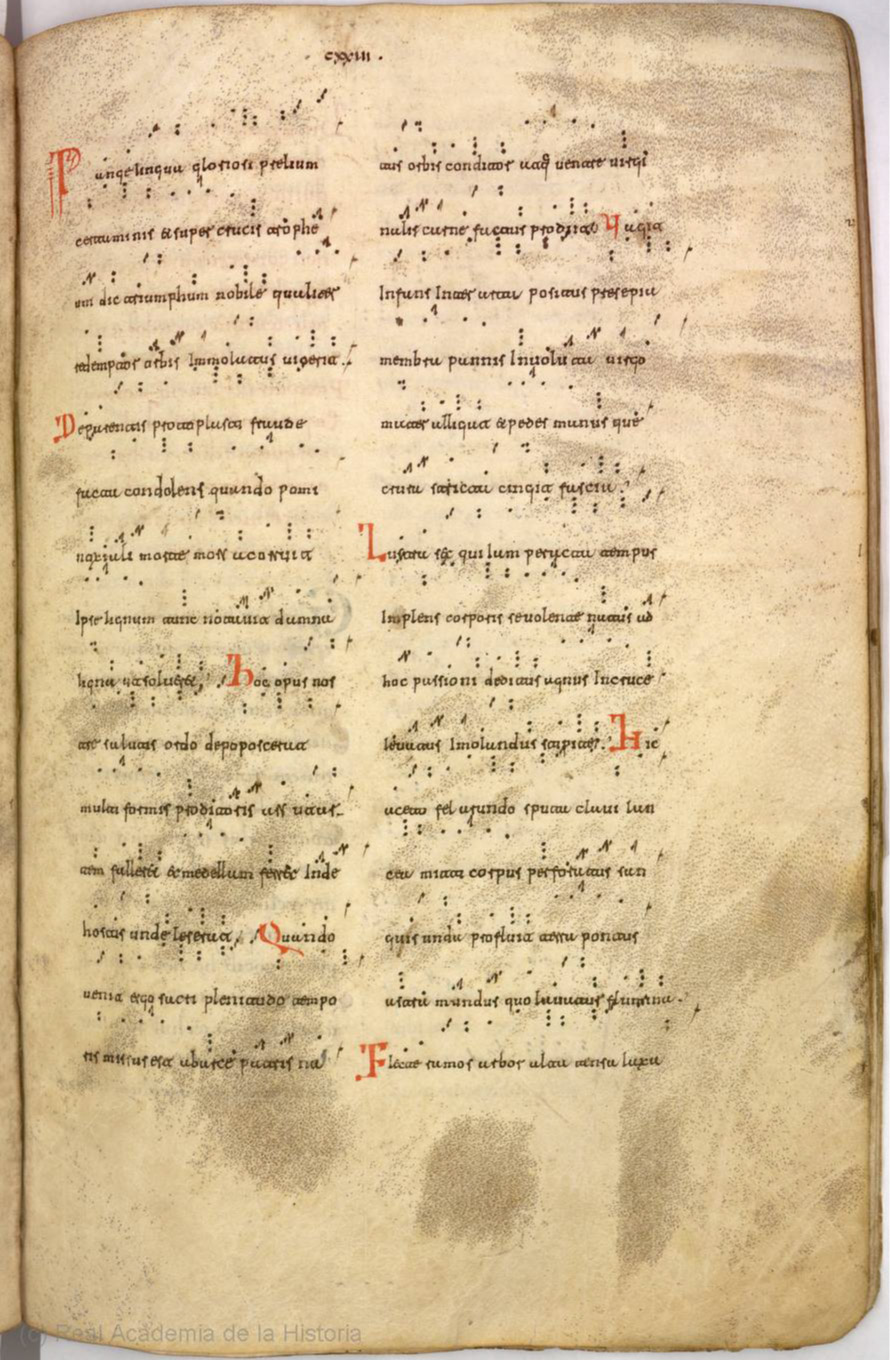 cxxiii
Pange lingua gloriosi prelium
certaminis & super crucis trophe
um dic triumphum nobile qualiter
redemptor orbis Immolatus uicerit
Deparentis protoplasti fraude
facta condolens quando pomi
noxiali morte mors uconruit
Ipse lignum tunc notauit damna
ligni ut solueret Hoc opus nos
tre salutis ordo depoposcerat
multi formis proditoris ars uatis
tem falleret & medellam ferret Inde
hostis unde leserat Quando
uenit ergo sacri plenitudo tempo
ris missus est ab arce patris na
tus orbis conditor atque uentre uirgi
nalis carne factus prodiit Uagit
Infans Inter arta positus presepia
membra pannis Inuoluta uirgo
mater alligat & pedes manus que
crura stricta cingit fascia
Lustra sex qui Iam peracta tempus
Implens corporis se uolente natus ad
hoc passioni deditus agnus Incruce
leuatus Imolandus stipite Hic
acetum fel arundo sputa claui lan
cea mite corpus perforatus san
quis unda profluit terra pontus
astra mundus quo lauantur flumina
Flecte ramos arbor alta tensa laxa
(c) Real Academia de la Historia